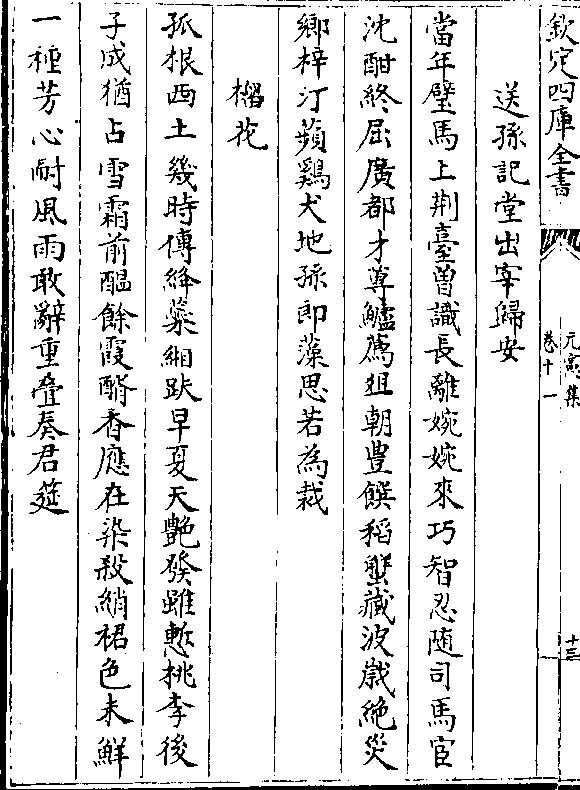 欽定四庫全書
元憲集
卷十一
十三
送孫記堂出宰歸安
當年壁馬上荆臺曾識長離婉婉來巧智忍随司馬宦
沈酣終屈廣都才蓴鱸薦俎朝豊饌稻蟹藏波嵗絶災
鄉梓汀蘋鷄犬地孫郎藻思若為裁
榴花
孤根西土幾時傳絳蘂緗趺早夏天艶發雖慙桃李後
子成猶占雪霜前醖餘霞醑香應在染殺綃裙色未鮮
一種芳心耐風雨敢辭重疊奏君筵